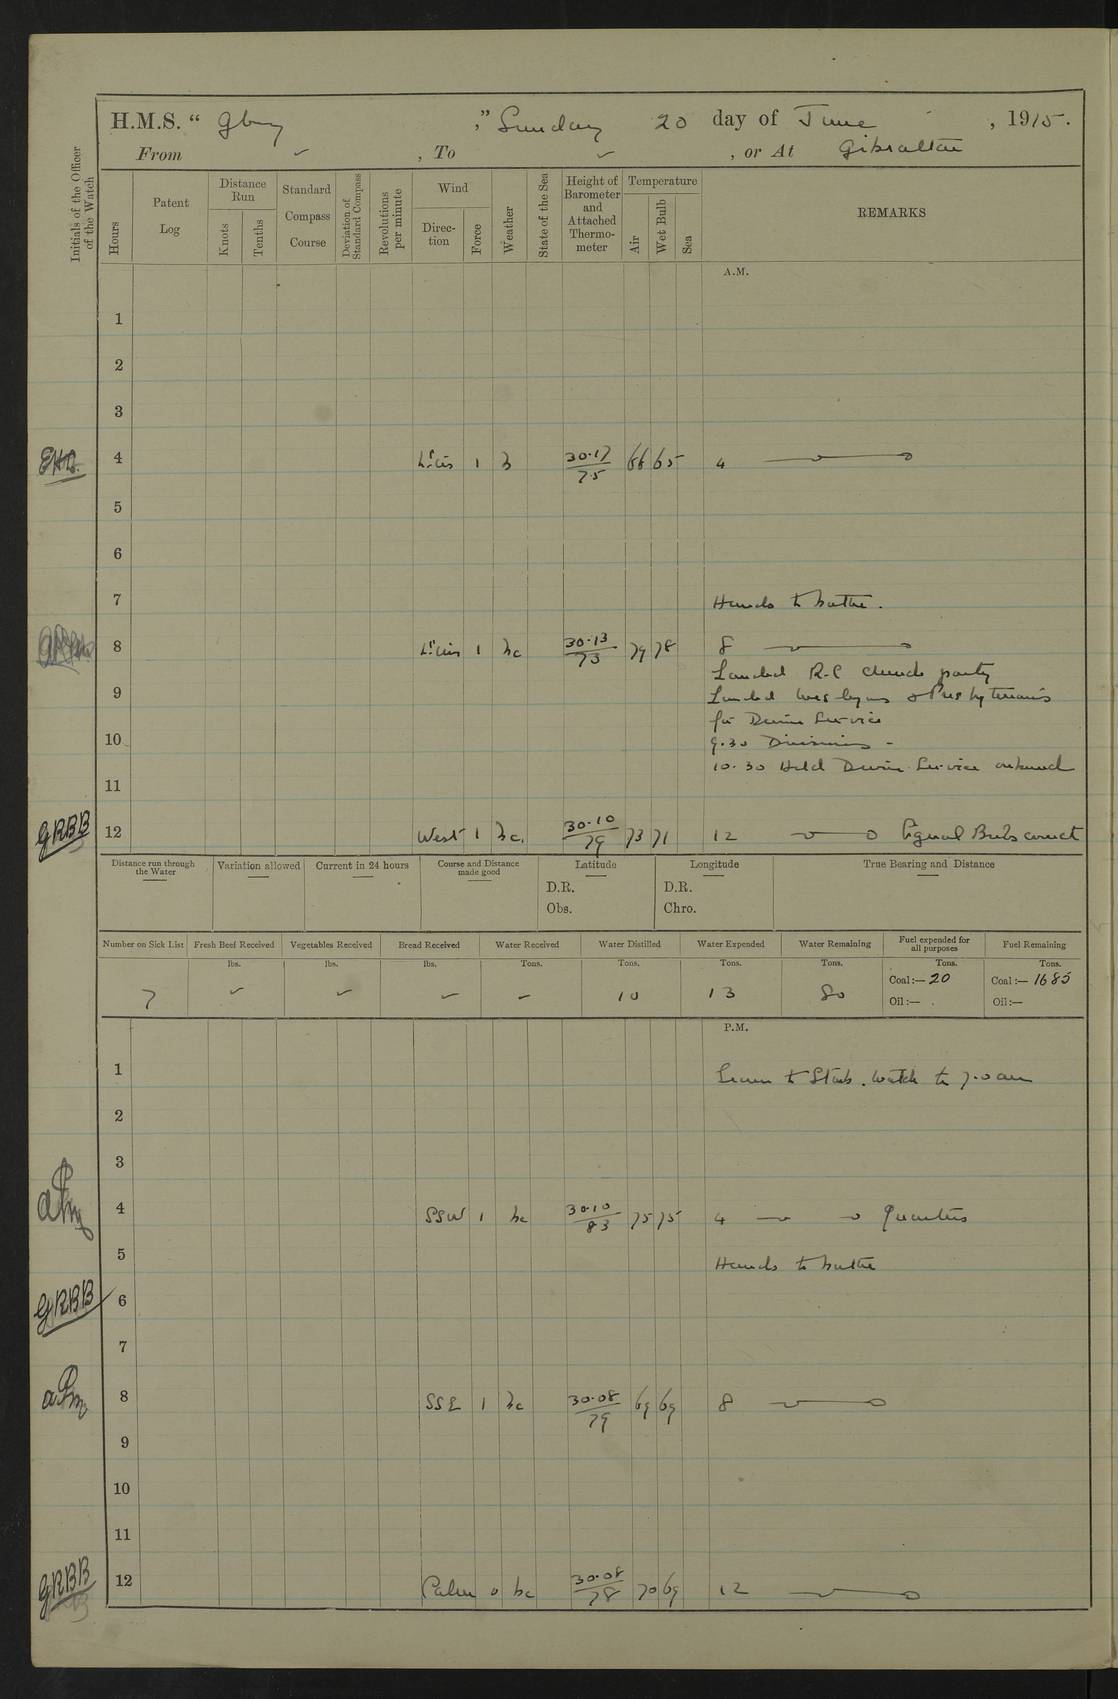 H.M.S. " Glory ," Sunday 20 day of June , 1915.
From ✓ , To ✓ , or At Gibraltar
Initials of the Officer of the Watch
Hours
Patent Log
Distance Run
Knots
Tenths
Standard Compass Course
Deviation of Standard Compass
Revolutions per minute
Wind
Direction
Force
Weather
State of the Sea
Height of Barometer and Attached Thermometer
Temperature
Air
Wet Bulb
Sea
REMARKS
A.M.
1
2
3
EHD. 4 Lt. airs 1 b 30.17 / 75 66 65 4
5
6
7 Hands to bathe.
8 Lt. airs 1 bc 30.13 / 73 79 78 8
Landed R.C church party
9 Landed Wesleyans & Presbyterians
for Divine Service
10 9.30 Divisions -
10.30 Held Divine Service onboard
11
GRBB 12 West 1 bc. 30.10 / 79 73 71 12 Signal Books correct
Distance run through the Water
Variation allowed
Current in 24 hours
Course and Distance made good
Latitude
D.R.
Obs.
Longitude
D.R.
Chro.
True Bearing and Distance
Number on Sick List
Fresh Beef Received
Vegetables Received
Bread Received
Water Received
Water Distilled
Water Expended
Water Remaining
Fuel expended for all purposes
Fuel Remaining
lbs. lbs. lbs. Tons. Tons. Tons. Tons. Tons. Tons.
7 ✓ ✓ ✓ ✓ 10 13 80 Coal:— 20 Coal:— 1685
Oil:— Oil:—
P.M.
1 Leave to Starb. watch to 7.0 am
2
3
4 SSW 1 bc 30.10 / 83 75 75 4 Quarters
5 Hands to bathe
GRBB 6
7
8 SSE 1 bc 30.08 / 79 69 69 8
9
10
11
GRBB 12 Calm 0 bc 30.08 / 78 70 69 12